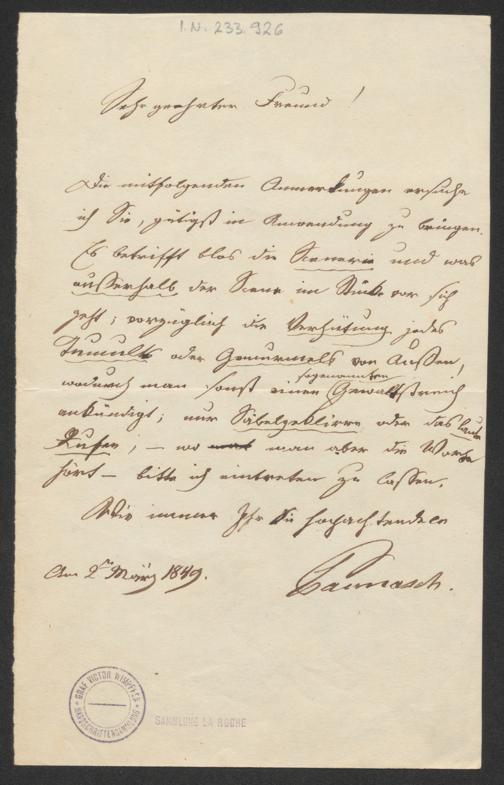 I.N. 233.926
Sehr geehrter Freund!
Die mitfolgenden Anmerkungen ersuche
ich Sie, gütigst in Anwendung zu bringen.
Es betrifft blos die Scenerie und was
außerhalb der Scene im Stücke vor sich
geht; vorzüglich die Verhütung jedes
Tumults oder Gemurmels von Außen,
sogenannten
wodurch man sonst einen Gewaltstreich
ankündigt; nur Säbelgeklirre oder das laute
Rufen, – wo man aber die Worte
hört – bitte ich eintreten zu lassen.
Wie immer Ihr Sie hochachtender
Am 2ten März 1849.
GRAF VICTOR WIMPFFEN
HANDSCHRIFTENSAMMLUNG
SAMMLUNG LA ROCHE